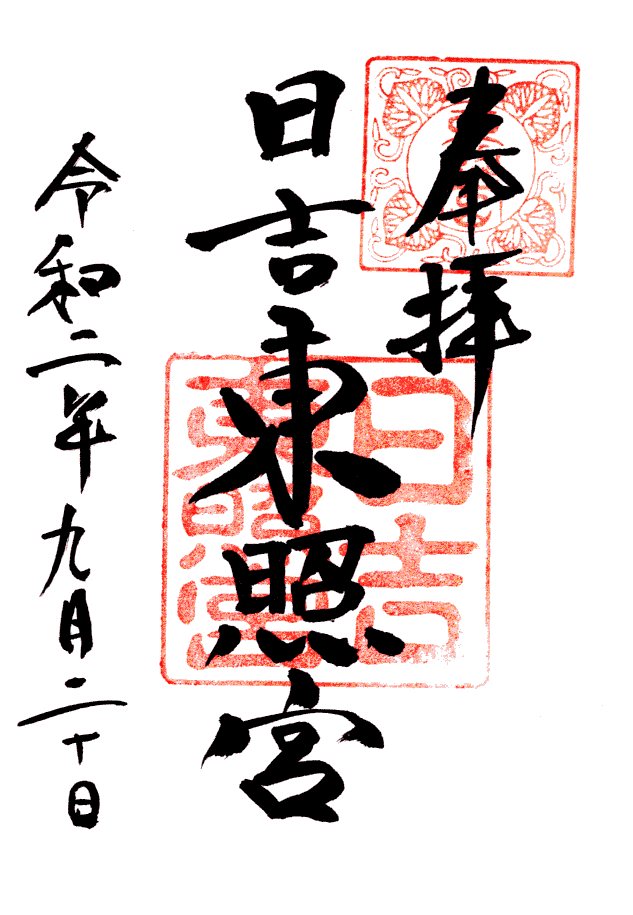 奉拝
日吉東照宮
日吉東照宮
令和二年九月二十日